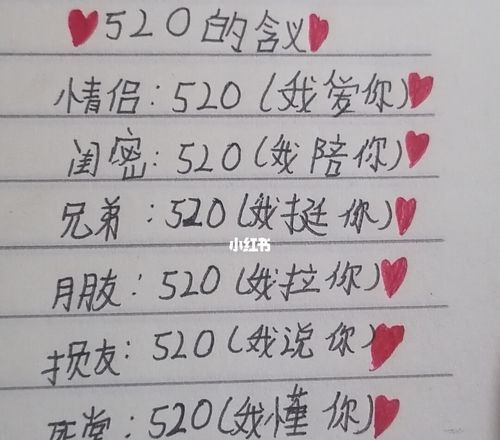 520的含义
情侣:520(我爱你)
闺密:520(我陪你)
兄弟:520(我挺你)
小红书
朋友:520(我拉你)
损友:520(我说你)
:520(我懂你)